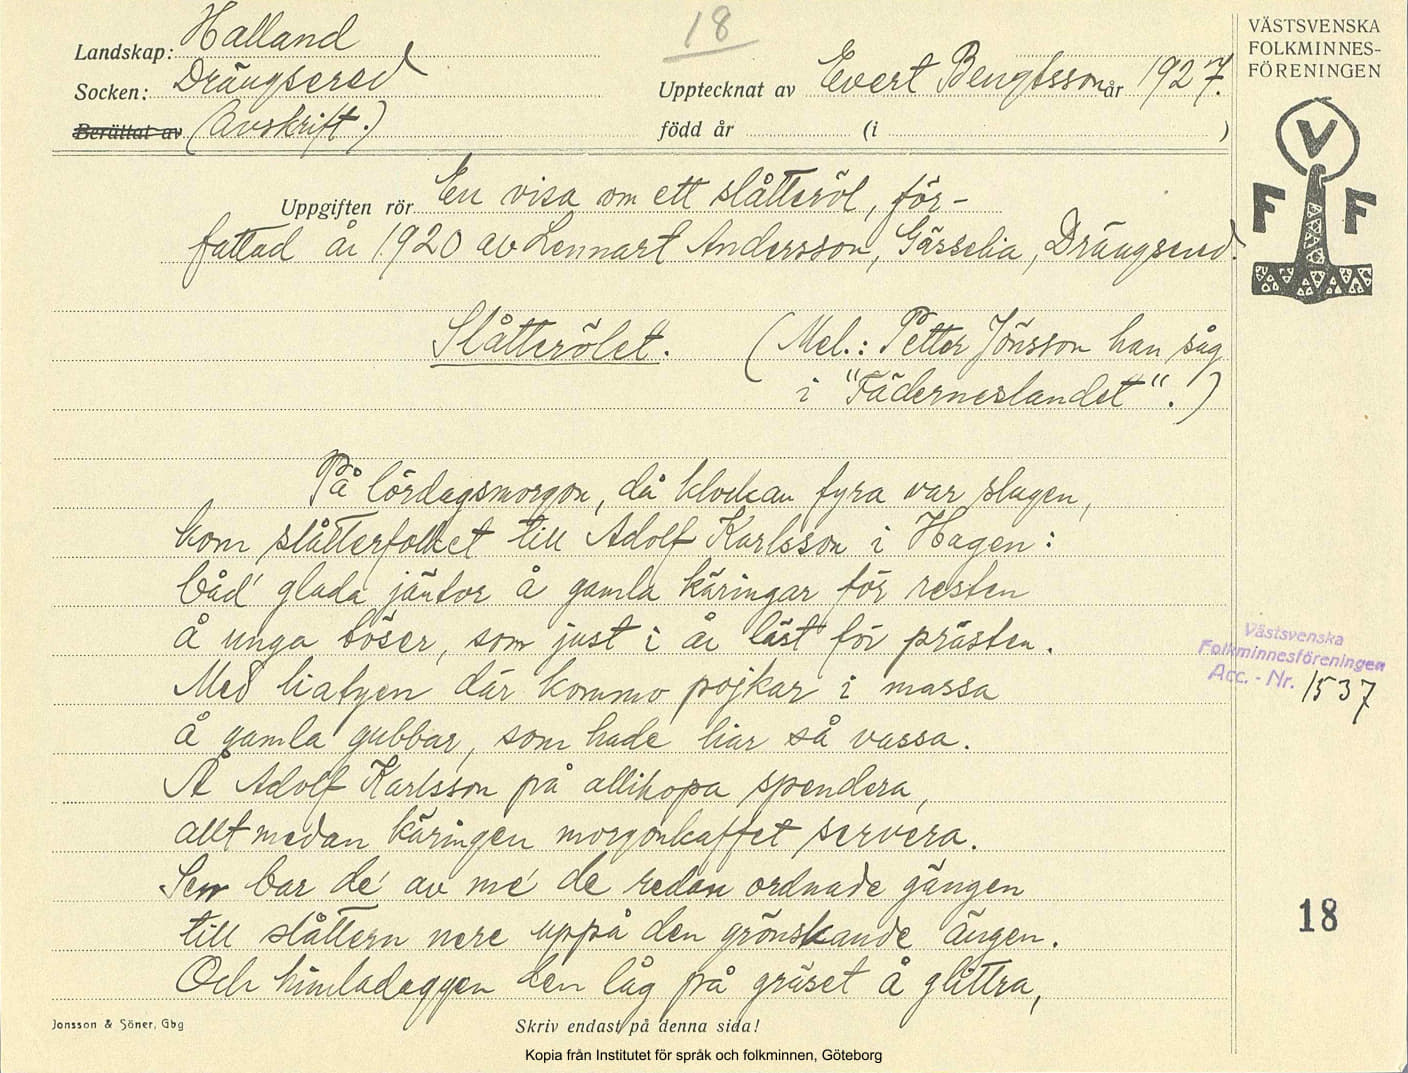 18
Landskap: Halland
Socken: Drängsered
Berättat av (Avskrift.)
Upptecknat av Evert Bengtsson år 1927.
född år (i )
VÄSTSVENSKA
FOLKMINNES-
FÖRENINGEN
V
F F
Uppgiften rör En visa om ett slåtteröl, för-
fattad år 1920 av Lennart Andersson, Gässelia, Drängsered.
Slåtterölet. (Mel.: Petter Jönsson han såg
i "Fäderneslandet".)
På lördagsmorgon, då klockan fyra var slagen,
kom slåtterfolket till Adolf Karlsson i Hagen:
båd' glada jäntor å gamla käringar för resten
å unga töser, som just i år läst för prästen.
Med liatygen där kommo pojkar i massa
å gamla gubbar, som hade liar så vassa.
Å Adolf Karlsson på allihopa spendera,
allt medan käringen morgonkaffet servera.
Sen bar de' av me' de redan ordnade gängen
till slåttern nere uppå den grönskande ängen.
Och himladaggen den låg på gräset å glittra,
Västsvenska
Folkminnesföreningen
Acc. - Nr. 1537
18
Jonsson & Söner, Gbg
Skriv endast på denna sida!
Kopia från Institutet för språk och folkminnen, Göteborg